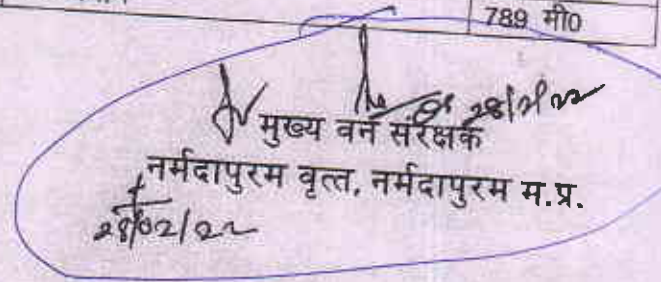 789 मी0
28/2/22
मुख्य वन संरक्षक
नर्मदापुरम वृत्त, नर्मदापुरम म.प्र.
28/02/22